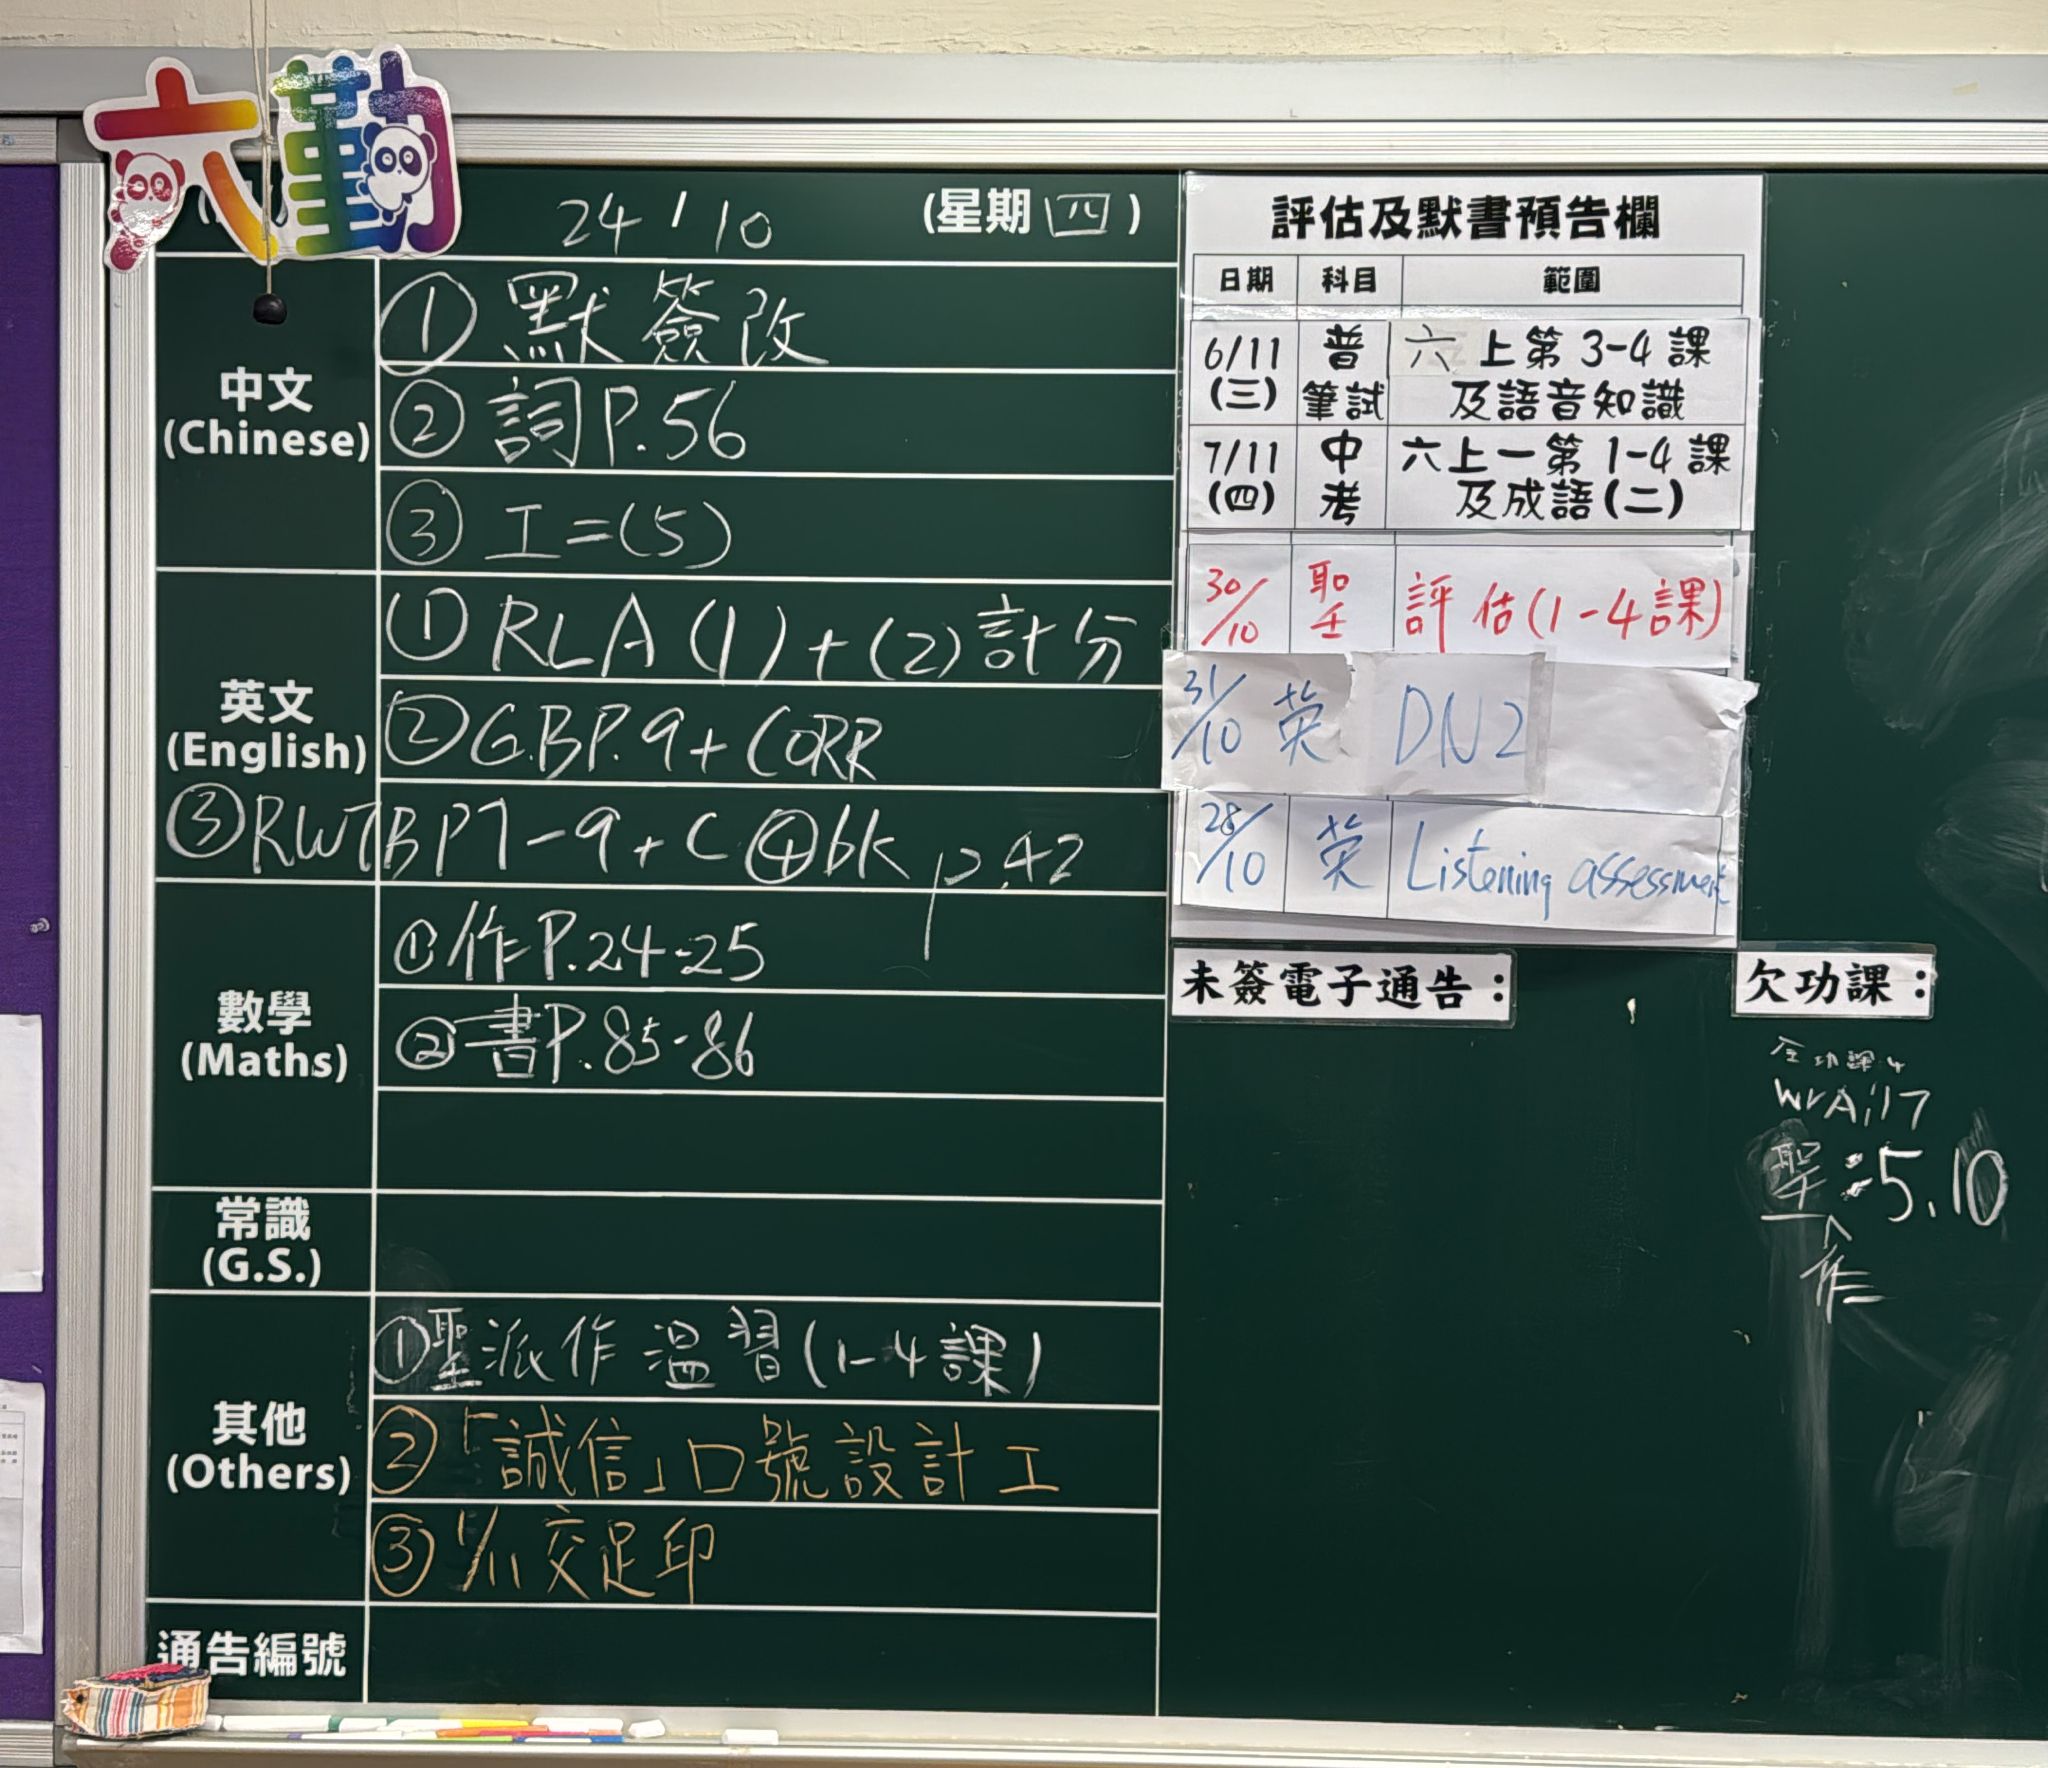 六勤
24 / 10 (星期 四)
中文
(Chinese)
① 默簽改
② 詞P.56
③ 工=(5)
英文
(English)
① RLA (1) + (2) 計分
② G.B P.9 + CORR
③ RWTB P7-9 + C ④ bk p.42
數學
(Maths)
① 作P.24-25
② 書P.85-86
常識
(G.S.)
其他
(Others)
① 聖派作溫習(1-4課)
② 「誠信」口號設計工
③ 1/11 交足印
通告編號
評估及默書預告欄
日期 科目 範圍
6/11 普 六上第3-4課
(三) 筆試 及語音知識
7/11 中 六上一第1-4課
(四) 考 及成語(二)
30/10 聖 評估(1-4課)
31/10 英 DN2
28/10 英 Listening assessment
未簽電子通告：
欠功課：
功課
WrA:17
聖:5.10
作